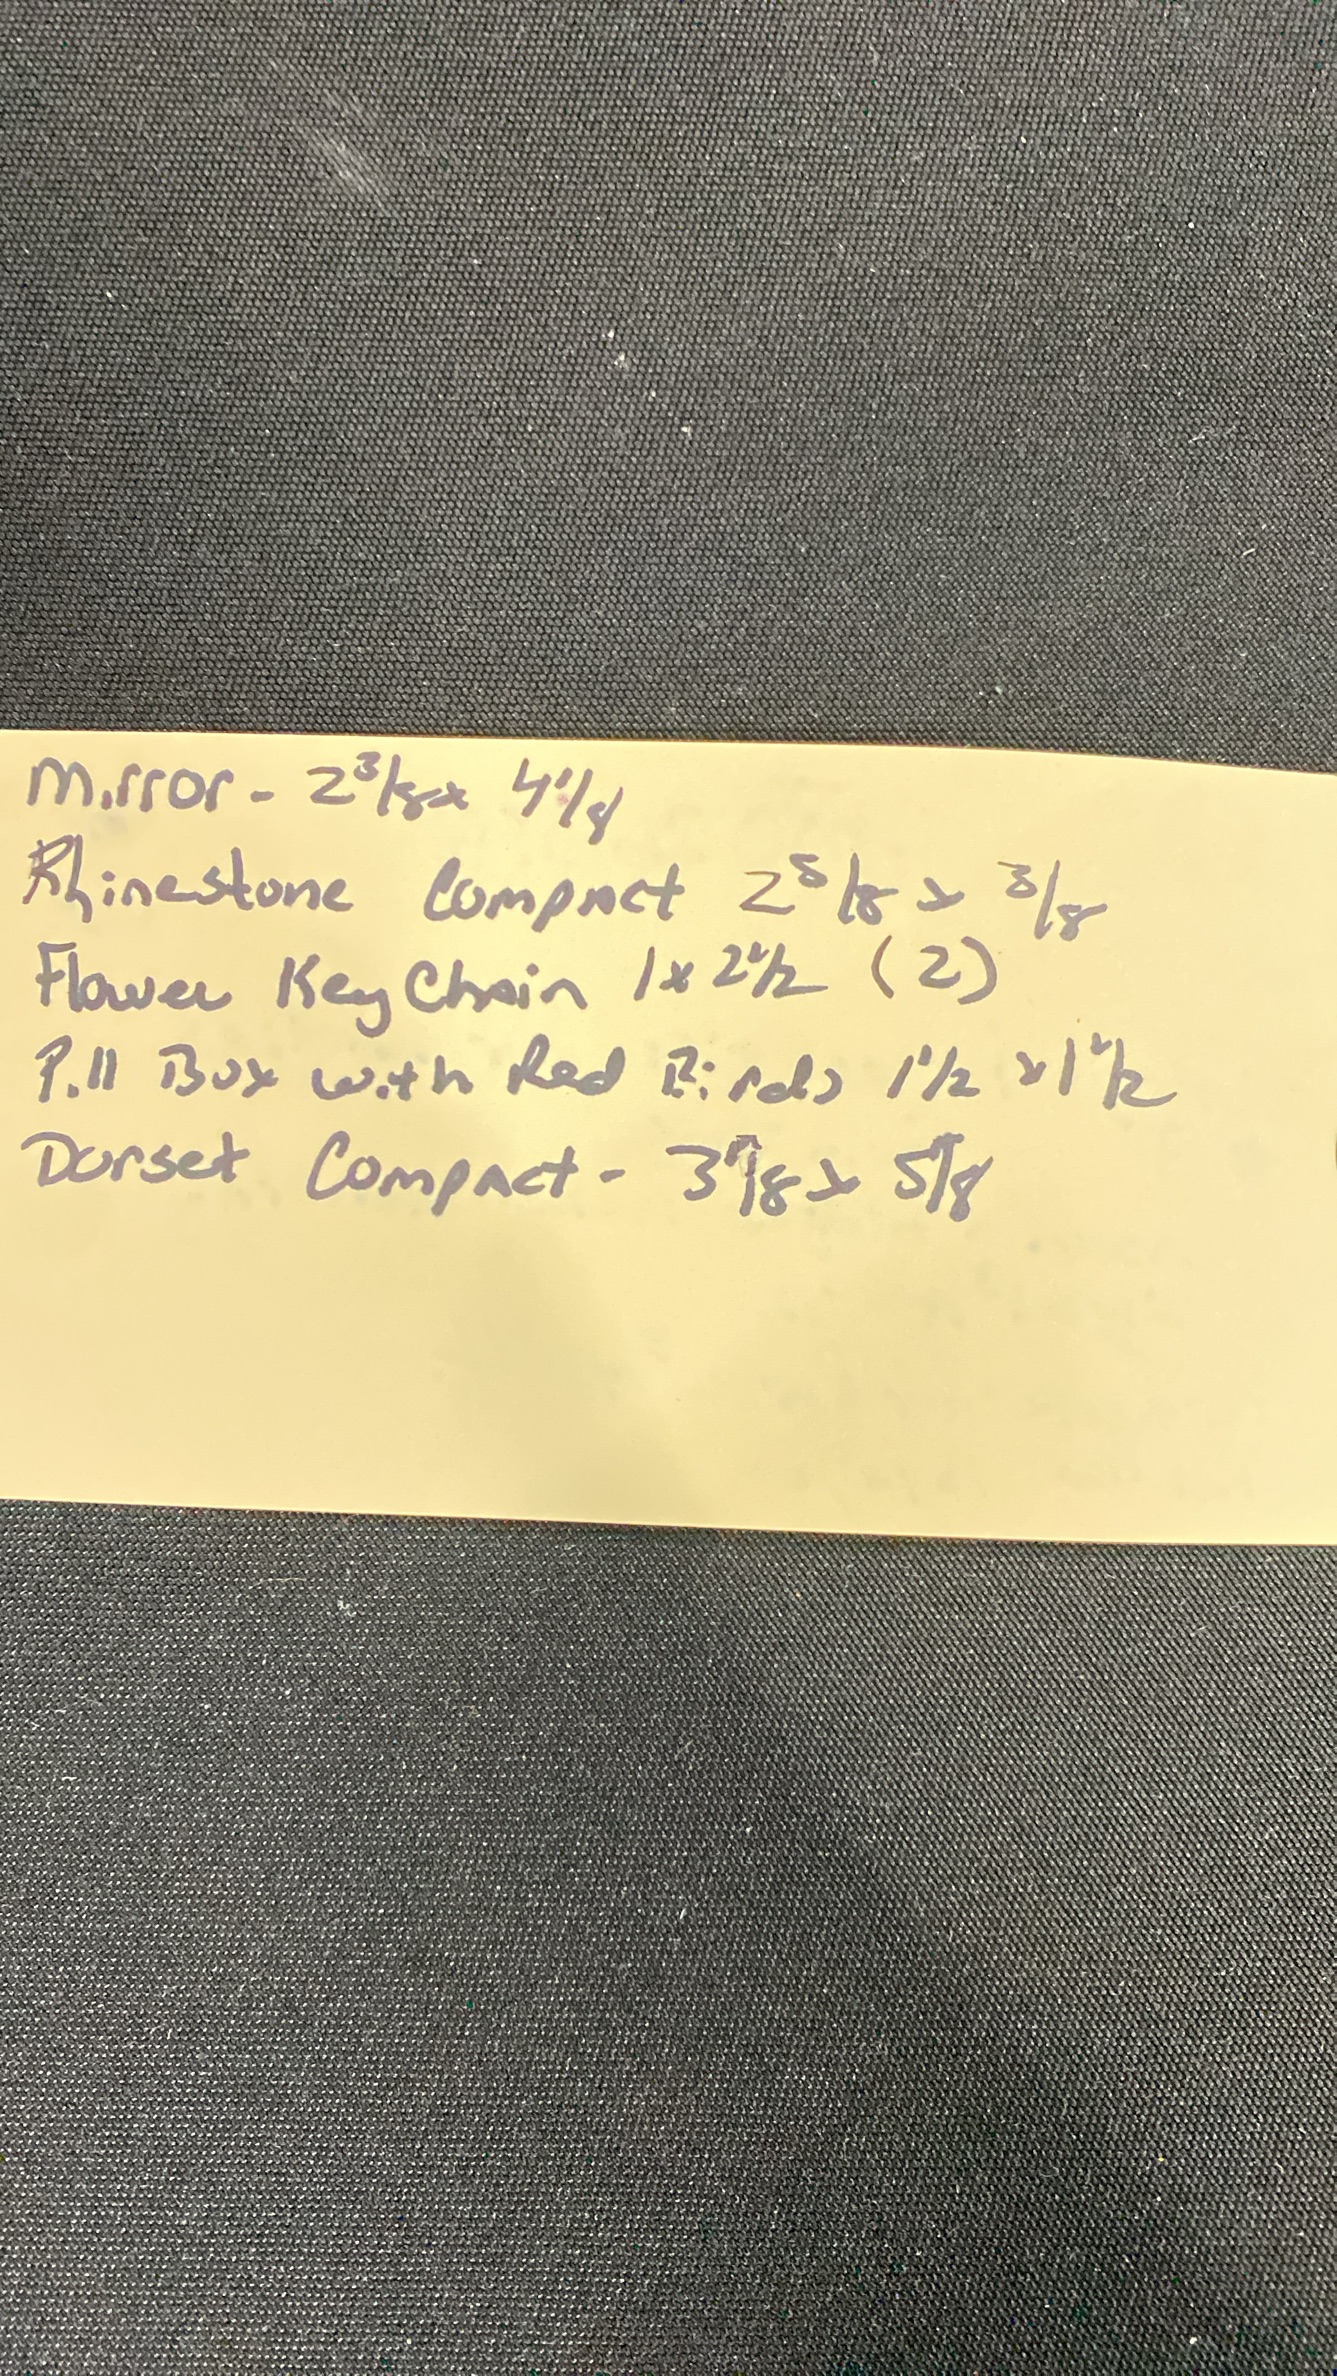 Mirror - 2 3/8 x 4 1/8
Rhinestone Compact 2 5/8 x 3/8
Flower Key Chain 1 x 2 1/2 (2)
Pill Box with Red Birds 1 1/2 x 1 1/2
Dorset Compact - 3 7/8 x 5/8